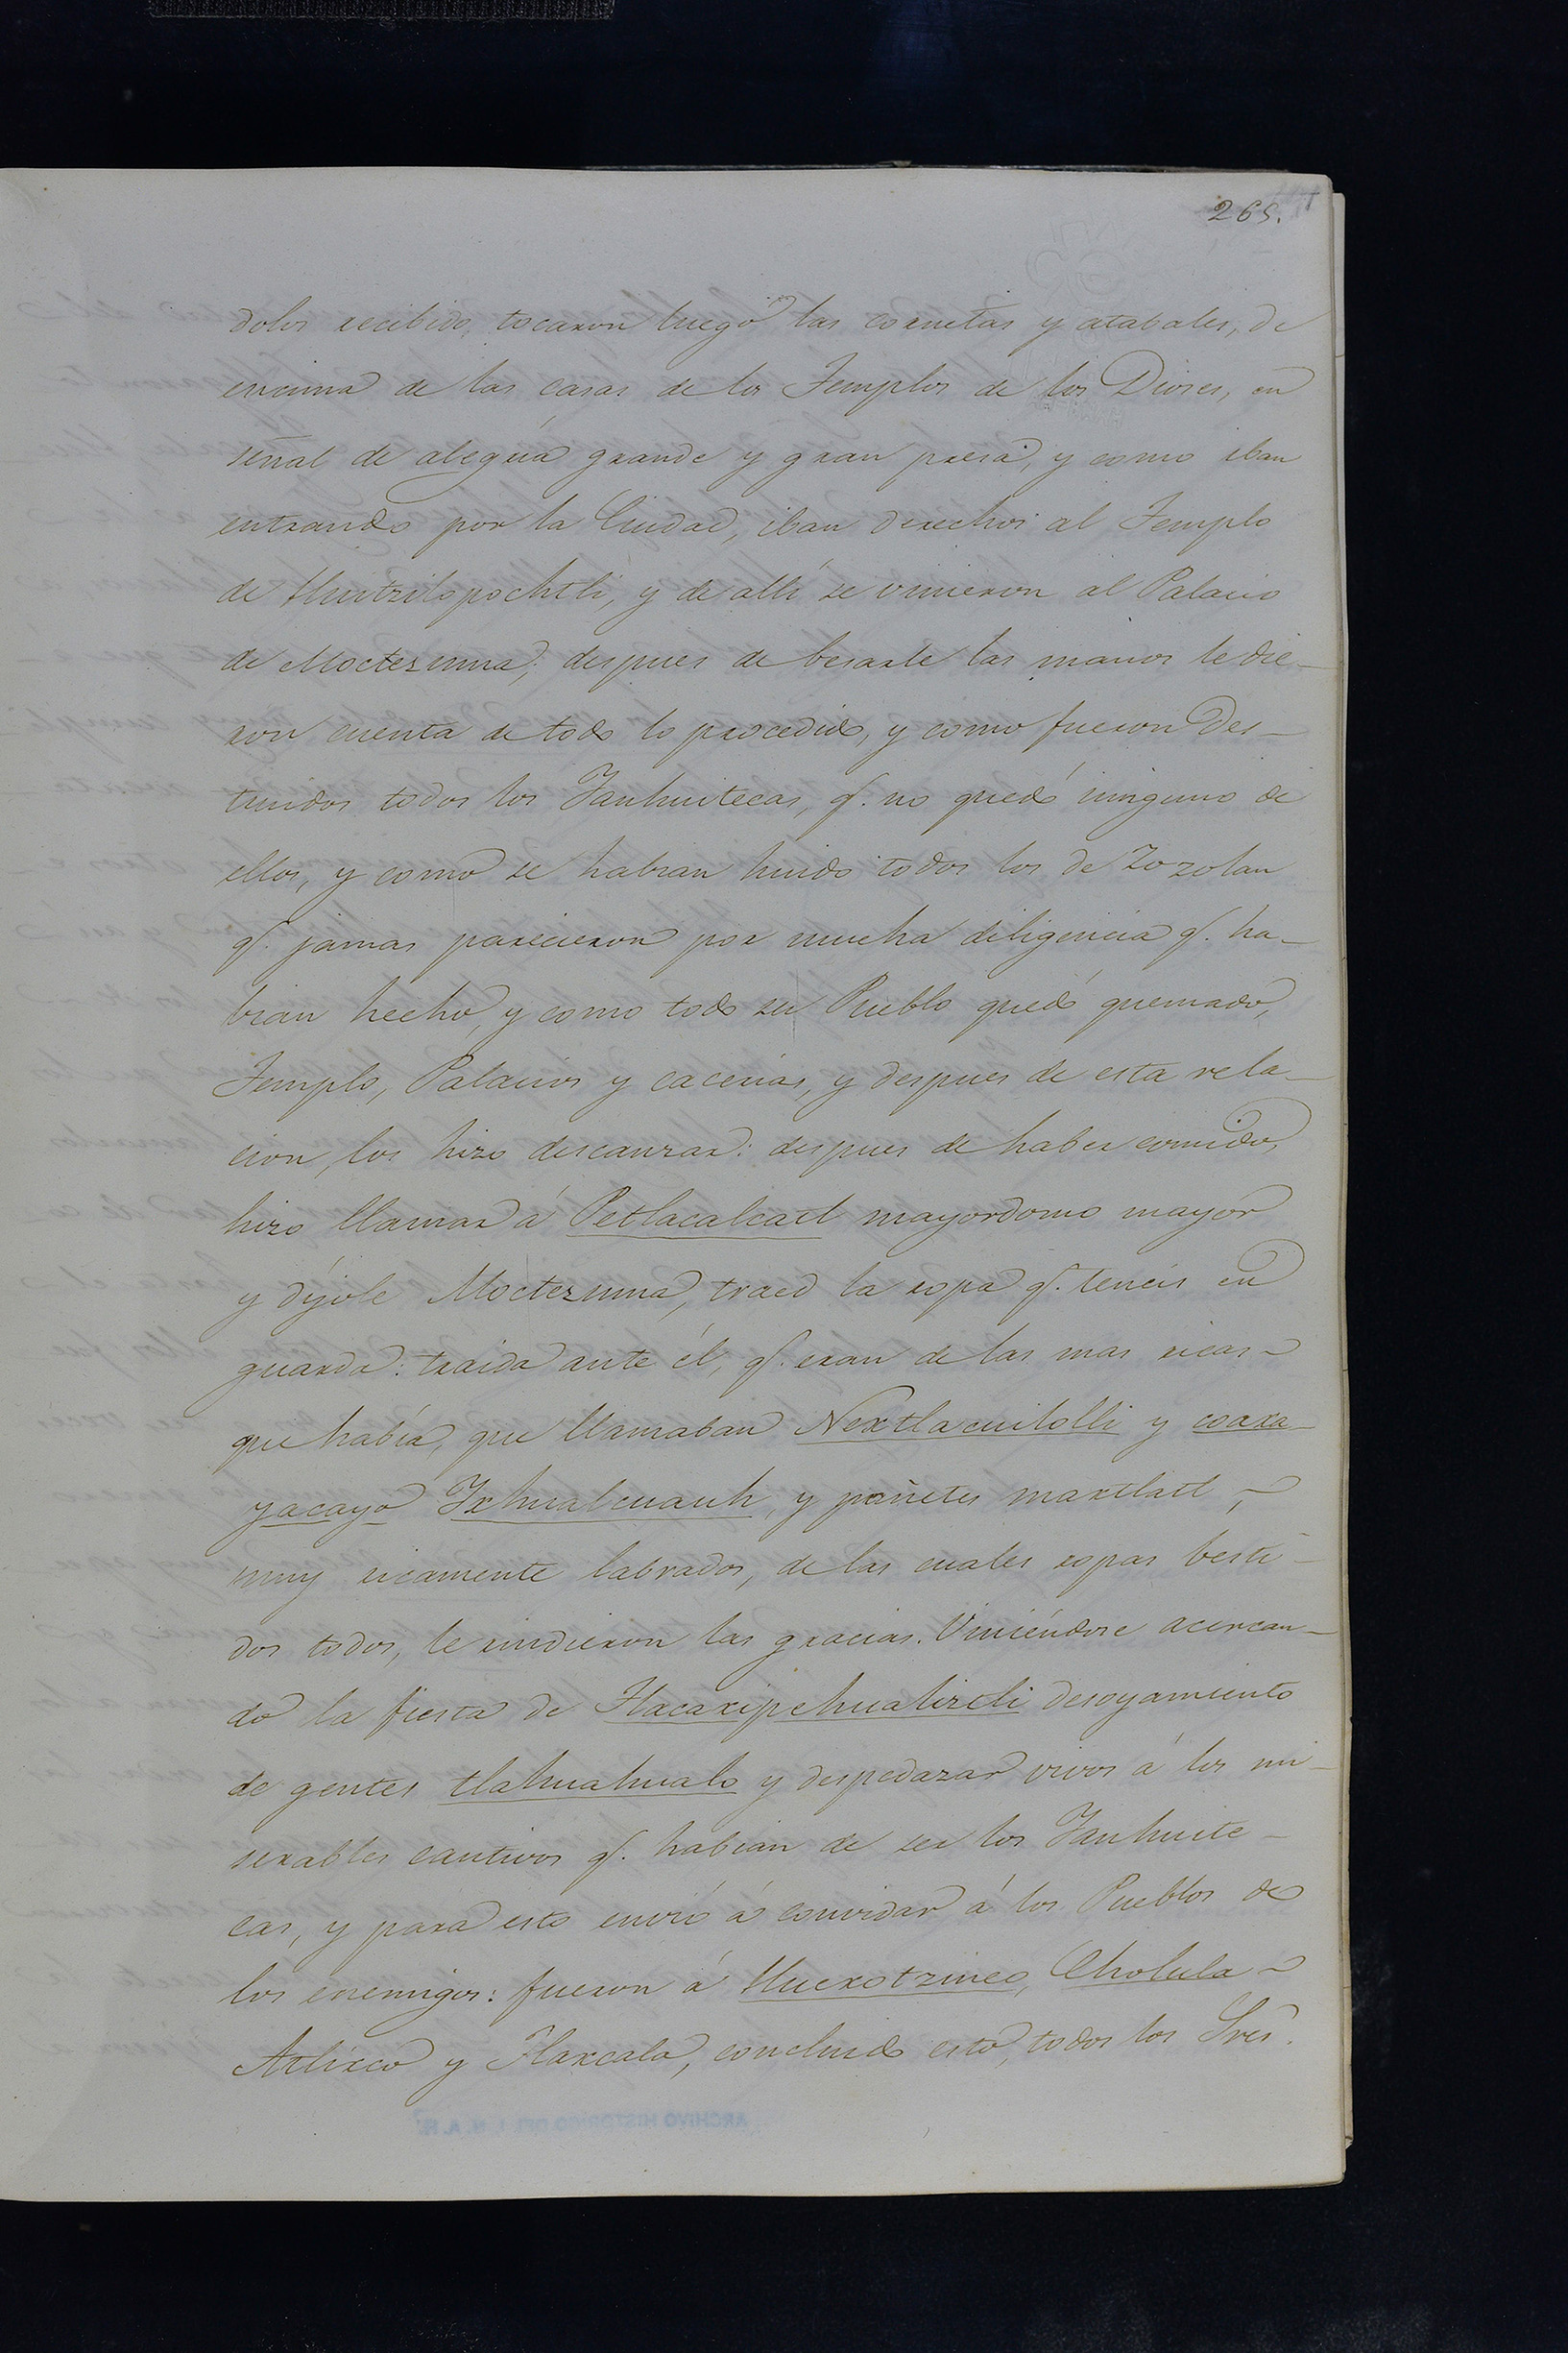 265.
dolos recibido, tocaron luego las cornetas y atabales, de
encima de las casas de los Templos de los Dioses, en
señal de alegría grande y gran presa, y como iban
entrando por la Ciudad, iban derechos al Templo
de Huitzilopochtli, y de allí se vinieron al Palacio
de Moctezuma; despues de besarle las manos le die-
ron cuenta de todo lo procedido, y como fueron Des-
truidos todos los Yanhuitecas, q. no quedó ninguno de
ellos, y como se habian huido todos los de Zozolan
q. jamas parecieron por mucha diligencia q. ha-
bian hecho, y como todo su Pueblo quedó quemado,
Templo, Palacios y cacerias, y despues de esta rela-
cion, los hizo descanzar: despues de haber comido,
hizo llamar á Petlacalcatl mayordomo mayor
y díjole Moctezuma, traed la ropa q. teneis en
guarda: traida ante él, q. eran de las mas ricas
que había, que llamaban Nextlacuilolli y coaxa-
yacayo Ixhualcuauh, y pañetes maxtlatl,
muy ricamente labrados, de las cuales ropas besti-
dos todos, le rindieron las gracias. Viniéndose acercan-
do la fiesta de Tlacaxipehualiztli desoyamiento
de gentes tlahuahualo y despedazar vivos á los mi-
serables cautivos q. habian de ser los Yanhuite-
cas, y para esto envió á convidar á los Pueblos de
los enemigos: fueron á Huexotzinco, Cholula
Atlixco y Tlaxcala, concluido esto, todos los Sres.
ARCHIVO HISTORICO DEL I. N. A. H.